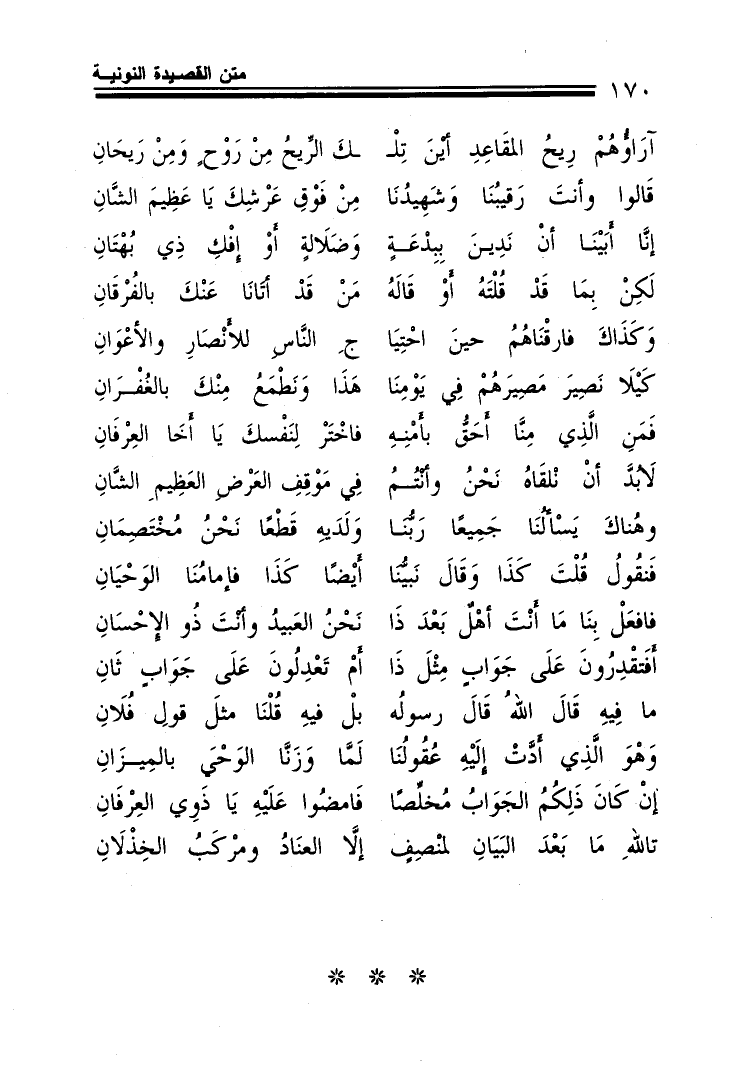 ١٧٠ متن القصيدة النونية
آرَاؤُهُمْ رِيحُ المَقَاعِدِ أيْنَ تِلْـ ـكَ الرِّيحُ مِنْ رَوْحٍ وَمِنْ رَيحَانِ
قَالوا وأنتَ رَقيبُنَا وَشَهِيدُنَا مِنْ فَوْقِ عَرْشِكَ يَا عَظِيمَ الشَّانِ
إنَّا أَبَيْنَـا أنْ نَدِينَ بِبِدْعَـةٍ وَضَلَالةٍ أَوْ إفْكِ ذِي بُهْتَانِ
لَكِنْ بِمَا قَدْ قُلْتَهُ أَوْ قَالَهُ مَنْ قَدْ أتَانَا عَنْكَ بالفُرْقَانِ
وَكَذَاكَ فارقْنَاهُمُ حينَ احْتِيَا جِ النَّاسِ للأَنْصَارِ والأعْوَانِ
كَيْلَا نَصِيرَ مَصِيرَهُمْ فِي يَوْمِنَا هَذَا وَنَطْمَعُ مِنْكَ بالغُفْـرَانِ
فَمَنِ الَّذِي مِنَّا أَحَقُّ بأَمْنِـهِ فاخْتَرْ لِنَفْسكَ يَا أَخَا العِرْفَانِ
لَابُدَّ أنْ نَلْقَاهُ نَحْنُ وأنْتُـمُ فِي مَوْقِفِ العَرْضِ العَظِيمِ الشَّانِ
وهُنَاكَ يَسْألُنَا جَمِيعًا رَبُّنَـا وَلَدَيهِ قَطْعًا نَحْنُ مُخْتَصِمَانِ
فَنقُولُ قُلْتَ كَذَا وَقَالَ نَبيُّنَا أَيْضًا كَذَا فإمامُنَا الوَحْيَانِ
فافعَلْ بِنَا مَا أَنْتَ أهْلٌ بَعْدَ ذَا نَحْنُ العَبيدُ وأنْتَ ذُو الإحْسَانِ
أَفَتَقْدِرُونَ عَلَى جَوَابٍ مِثْلَ ذَا أَمْ تَعْدِلُونَ عَلَى جَوَابٍ ثَانِ
ما فِيهِ قَالَ اللهُ قَالَ رسولُه بلْ فيهِ قُلْنَا مثلَ قولِ فُلَانِ
وَهْوَ الَّذِي أَدَّتْ إلَيْهِ عُقُولُنَا لَمَّا وَزَنَّا الوَحْيَ بالمِيـزَانِ
إنْ كَانَ ذَلِكُمُ الجَوَابُ مُخلِّصًا فَامضُوا عَلَيْهِ يَا ذَوِي العِرْفَانِ
تاللهِ مَا بَعْدَ البَيَانِ لمُنْصِفٍ إلَّا العنَادُ ومرْكَبُ الخِذْلَانِ